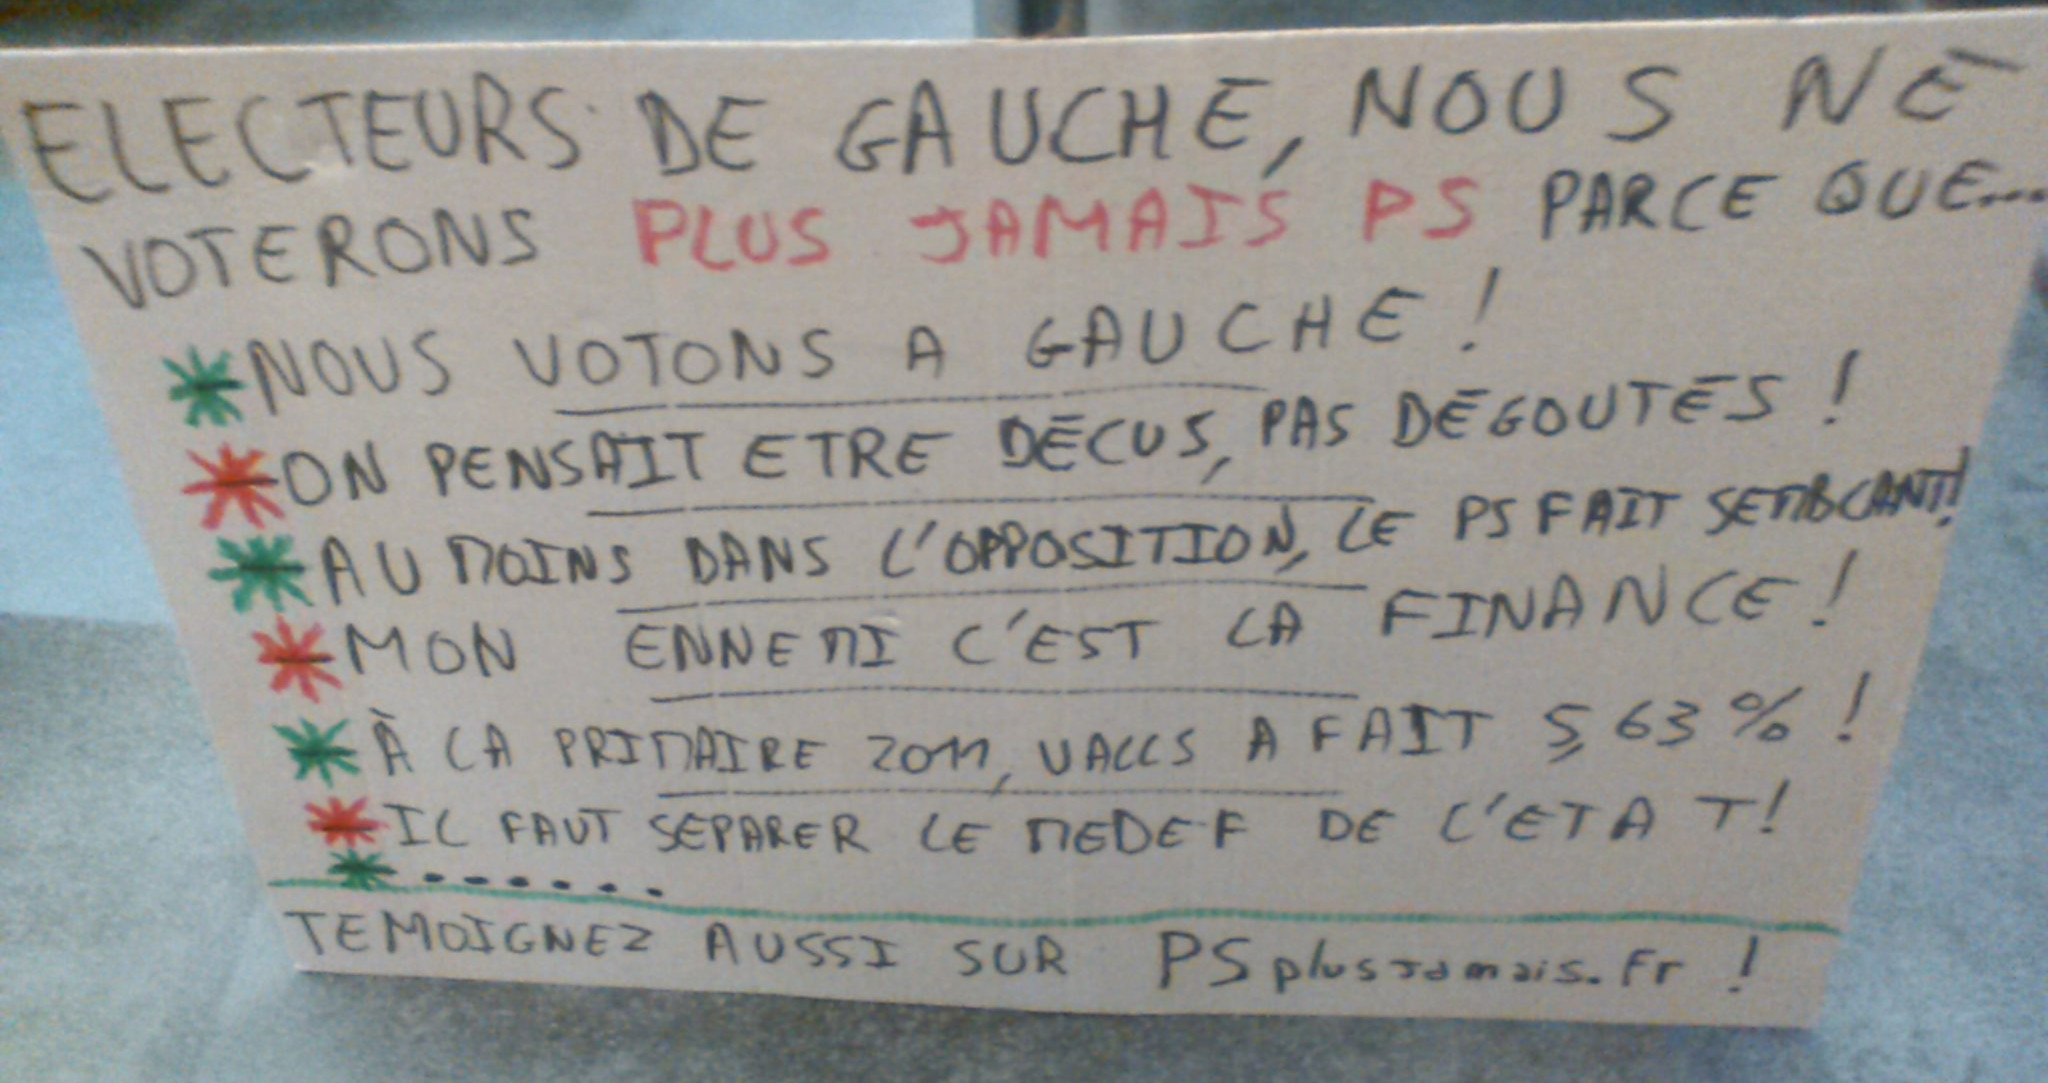 ELECTEURS DE GAUCHE, NOUS NE
VOTERONS PLUS JAMAIS PS PARCE QUE...
* NOUS VOTONS A GAUCHE !
* ON PENSAIT ETRE DÉCUS, PAS DÉGOUTÉS !
* AU MOINS DANS L'OPPOSITION, LE PS FAIT SEMBLANT!
* MON ENNEMI C'EST LA FINANCE !
* À LA PRIMAIRE 2011, VALLS A FAIT 5,63 % !
* IL FAUT SEPARER LE MEDEF DE L'ETAT !
* .......
TEMOIGNEZ AUSSI SUR PSplusJamais.Fr !